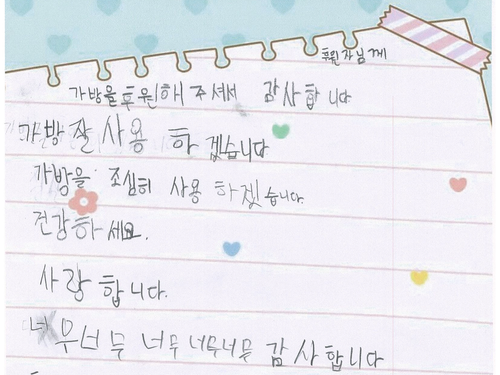 후원자님께
가방을 후원해 주셔서 감사합니다
가방 잘 사용 하겠습니다
가방을 조심히 사용 하겠습니다.
건강하세요.
사랑합니다.
너무너무 너무 너무너무 감사합니다